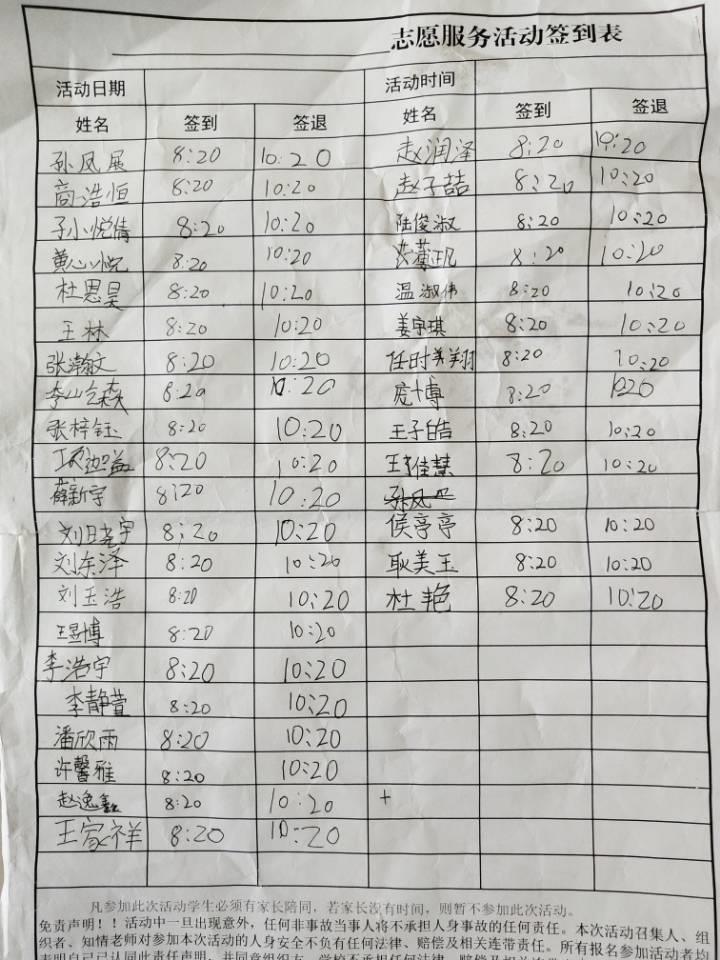 志愿服务活动签到表
活动日期 活动时间
姓名 签到 签退 姓名 签到 签退
孙凤展 8:20 10:20 赵润泽 8:20 10:20
商浩恒 8:20 10:20 赵子喆 8:20 10:20
孙小悦倩 8:20 10:20 陆俊淑 8:20 10:20
黄心悦 8:20 10:20 8:20 10:20
杜恩昊 8:20 10:20 温淑伟 8:20 10:20
王林 8:20 10:20 姜宇琪 8:20 10:20
张瀚文 8:20 10:20 任时美翔 8:20 10:20
8:20 10:20 庞博 8:20 1020
张梓钰 8:20 10:20 王子皓 8:20 10:20
8:20 10:20 王佳慧 8:20 10:20
薛新宇 8:20 10:20
8:20 10:20 侯亭亭 8:20 10:20
刘东泽 8:20 10:20 耿美玉 8:20 10:20
刘玉浩 8:20 10:20 杜艳 8:20 10:20
王昱博 8:20 10:20
李浩宇 8:20 10:20
李静萱 8:20 10:20
潘欣雨 8:20 10:20
许馨雅 8:20 10:20
赵逸鑫 8:20 10:20 +
王家祥 8:20 10:20
凡参加此次活动学生必须有家长陪同，若家长没有时间，则暂不参加此次活动。
免责声明！！活动中一旦出现意外，任何非事故当事人将不承担人身事故的任何责任。本次活动召集人、组
织者、知情老师对参加本次活动的人身安全不负有任何法律、赔偿及相关连带责任。所有报名参加活动者均
表明自己已认同此责任声明，并同意组织方、学校不承担任何法律、赔偿及相关连带